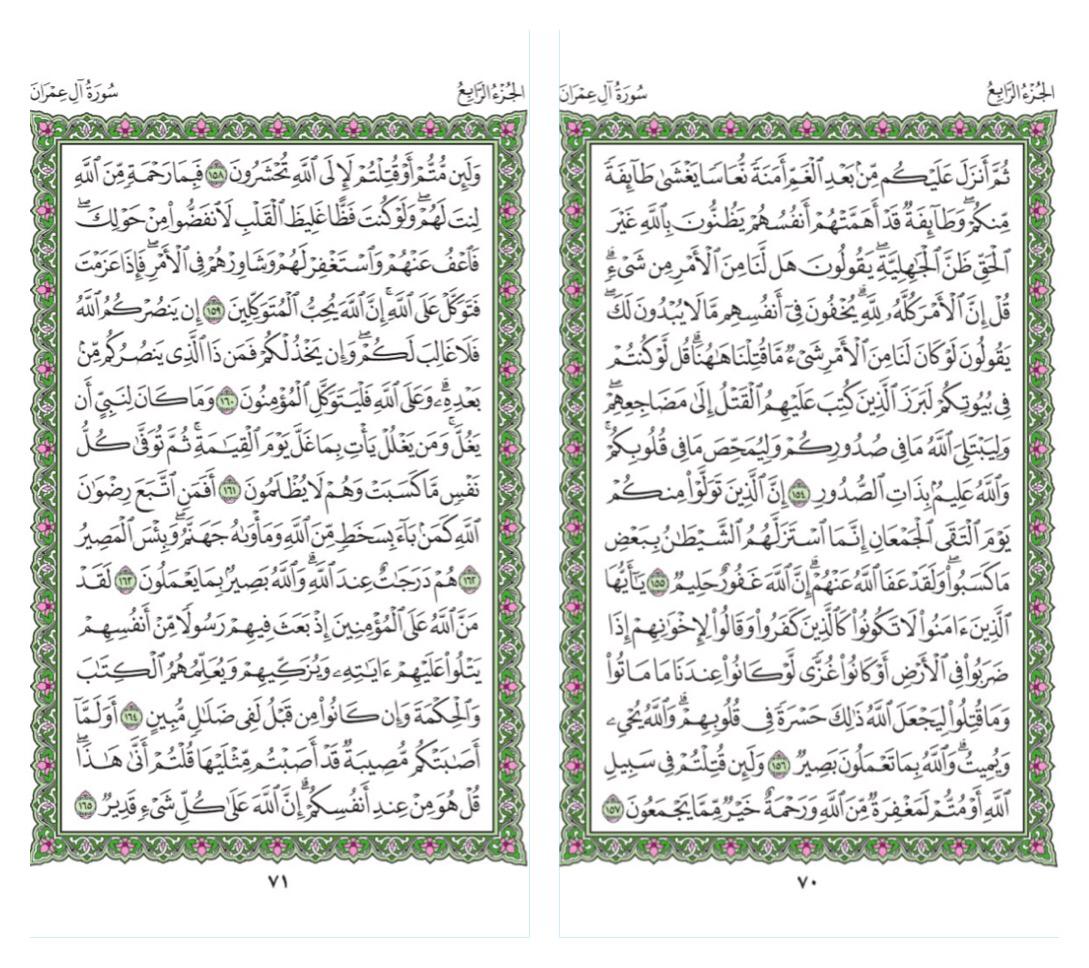 الجُزْءُ الرَّابِعُ
سُورَةُ آلِ عِمْرَانَ
ثُمَّ أَنزَلَ عَلَيْكُم مِّنۢ بَعْدِ ٱلْغَمِّ أَمَنَةً نُّعَاسًا يَغْشَىٰ طَآئِفَةً
مِّنكُمْۖ وَطَآئِفَةٌ قَدْ أَهَمَّتْهُمْ أَنفُسُهُمْ يَظُنُّونَ بِٱللَّهِ غَيْرَ
ٱلْحَقِّ ظَنَّ ٱلْجَٰهِلِيَّةِۖ يَقُولُونَ هَل لَّنَا مِنَ ٱلْأَمْرِ مِن شَىْءٍۗ
قُلْ إِنَّ ٱلْأَمْرَ كُلَّهُۥ لِلَّهِۗ يُخْفُونَ فِىٓ أَنفُسِهِم مَّا لَا يُبْدُونَ لَكَۖ
يَقُولُونَ لَوْ كَانَ لَنَا مِنَ ٱلْأَمْرِ شَىْءٌ مَّا قُتِلْنَا هَٰهُنَاۗ قُل لَّوْ كُنتُمْ
فِى بُيُوتِكُمْ لَبَرَزَ ٱلَّذِينَ كُتِبَ عَلَيْهِمُ ٱلْقَتْلُ إِلَىٰ مَضَاجِعِهِمْۖ
وَلِيَبْتَلِىَ ٱللَّهُ مَا فِى صُدُورِكُمْ وَلِيُمَحِّصَ مَا فِى قُلُوبِكُمْۚ
وَٱللَّهُ عَلِيمٌۢ بِذَاتِ ٱلصُّدُورِ ١٥٤ إِنَّ ٱلَّذِينَ تَوَلَّوْا۟ مِنكُمْ
يَوْمَ ٱلْتَقَى ٱلْجَمْعَانِ إِنَّمَا ٱسْتَزَلَّهُمُ ٱلشَّيْطَٰنُ بِبَعْضِ
مَا كَسَبُوا۟ۖ وَلَقَدْ عَفَا ٱللَّهُ عَنْهُمْۗ إِنَّ ٱللَّهَ غَفُورٌ حَلِيمٌ ١٥٥ يَٰٓأَيُّهَا
ٱلَّذِينَ ءَامَنُوا۟ لَا تَكُونُوا۟ كَٱلَّذِينَ كَفَرُوا۟ وَقَالُوا۟ لِإِخْوَٰنِهِمْ إِذَا
ضَرَبُوا۟ فِى ٱلْأَرْضِ أَوْ كَانُوا۟ غُزًّى لَّوْ كَانُوا۟ عِندَنَا مَا مَاتُوا۟
وَمَا قُتِلُوا۟ لِيَجْعَلَ ٱللَّهُ ذَٰلِكَ حَسْرَةً فِى قُلُوبِهِمْۗ وَٱللَّهُ يُحْىِۦ
وَيُمِيتُۗ وَٱللَّهُ بِمَا تَعْمَلُونَ بَصِيرٌ ١٥٦ وَلَئِن قُتِلْتُمْ فِى سَبِيلِ
ٱللَّهِ أَوْ مُتُّمْ لَمَغْفِرَةٌ مِّنَ ٱللَّهِ وَرَحْمَةٌ خَيْرٌ مِّمَّا يَجْمَعُونَ ١٥٧
٧٠
الجُزْءُ الرَّابِعُ
سُورَةُ آلِ عِمْرَانَ
وَلَئِن مُّتُّمْ أَوْ قُتِلْتُمْ لَإِلَى ٱللَّهِ تُحْشَرُونَ ١٥٨ فَبِمَا رَحْمَةٍ مِّنَ ٱللَّهِ
لِنتَ لَهُمْۖ وَلَوْ كُنتَ فَظًّا غَلِيظَ ٱلْقَلْبِ لَٱنفَضُّوا۟ مِنْ حَوْلِكَۖ
فَٱعْفُ عَنْهُمْ وَٱسْتَغْفِرْ لَهُمْ وَشَاوِرْهُمْ فِى ٱلْأَمْرِۖ فَإِذَا عَزَمْتَ
فَتَوَكَّلْ عَلَى ٱللَّهِۚ إِنَّ ٱللَّهَ يُحِبُّ ٱلْمُتَوَكِّلِينَ ١٥٩ إِن يَنصُرْكُمُ ٱللَّهُ
فَلَا غَالِبَ لَكُمْۖ وَإِن يَخْذُلْكُمْ فَمَن ذَا ٱلَّذِى يَنصُرُكُم مِّنۢ
بَعْدِهِۦۗ وَعَلَى ٱللَّهِ فَلْيَتَوَكَّلِ ٱلْمُؤْمِنُونَ ١٦٠ وَمَا كَانَ لِنَبِىٍّ أَن
يَغُلَّۚ وَمَن يَغْلُلْ يَأْتِ بِمَا غَلَّ يَوْمَ ٱلْقِيَٰمَةِۚ ثُمَّ تُوَفَّىٰ كُلُّ
نَفْسٍ مَّا كَسَبَتْ وَهُمْ لَا يُظْلَمُونَ ١٦١ أَفَمَنِ ٱتَّبَعَ رِضْوَٰنَ
ٱللَّهِ كَمَنۢ بَآءَ بِسَخَطٍ مِّنَ ٱللَّهِ وَمَأْوَىٰهُ جَهَنَّمُۖ وَبِئْسَ ٱلْمَصِيرُ
١٦٢ هُمْ دَرَجَٰتٌ عِندَ ٱللَّهِۗ وَٱللَّهُ بَصِيرٌۢ بِمَا يَعْمَلُونَ ١٦٣ لَقَدْ
مَنَّ ٱللَّهُ عَلَى ٱلْمُؤْمِنِينَ إِذْ بَعَثَ فِيهِمْ رَسُولًا مِّنْ أَنفُسِهِمْ
يَتْلُوا۟ عَلَيْهِمْ ءَايَٰتِهِۦ وَيُزَكِّيهِمْ وَيُعَلِّمُهُمُ ٱلْكِتَٰبَ
وَٱلْحِكْمَةَ وَإِن كَانُوا۟ مِن قَبْلُ لَفِى ضَلَٰلٍ مُّبِينٍ ١٦٤ أَوَلَمَّآ
أَصَٰبَتْكُم مُّصِيبَةٌ قَدْ أَصَبْتُم مِّثْلَيْهَا قُلْتُمْ أَنَّىٰ هَٰذَاۖ
قُلْ هُوَ مِنْ عِندِ أَنفُسِكُمْۗ إِنَّ ٱللَّهَ عَلَىٰ كُلِّ شَىْءٍ قَدِيرٌ ١٦٥
٧١